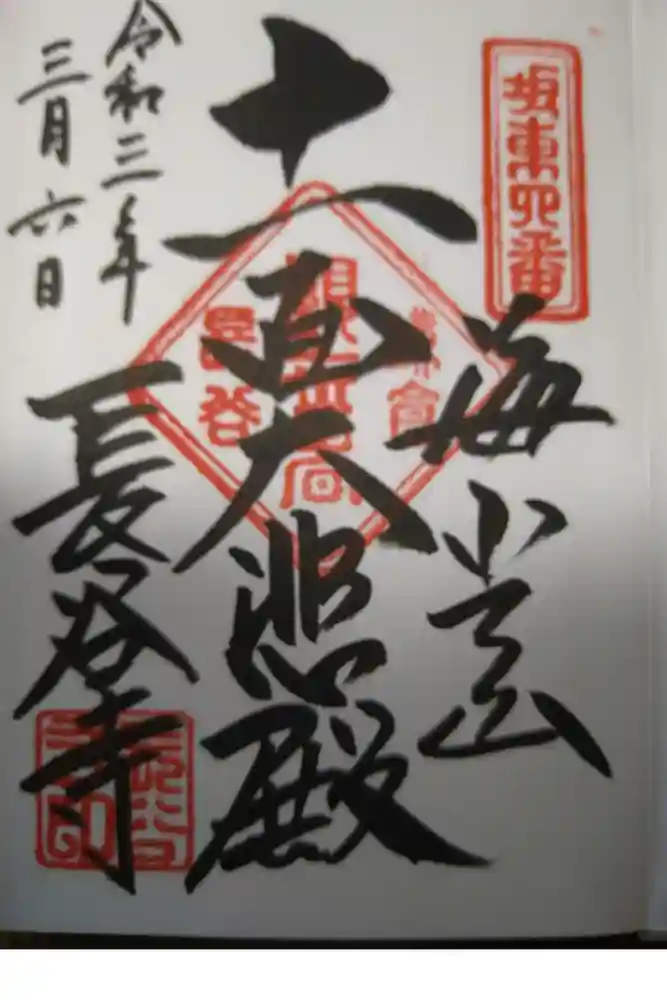 坂東四番
海光山
十一面大悲殿
長谷寺
令和三年
三月六日